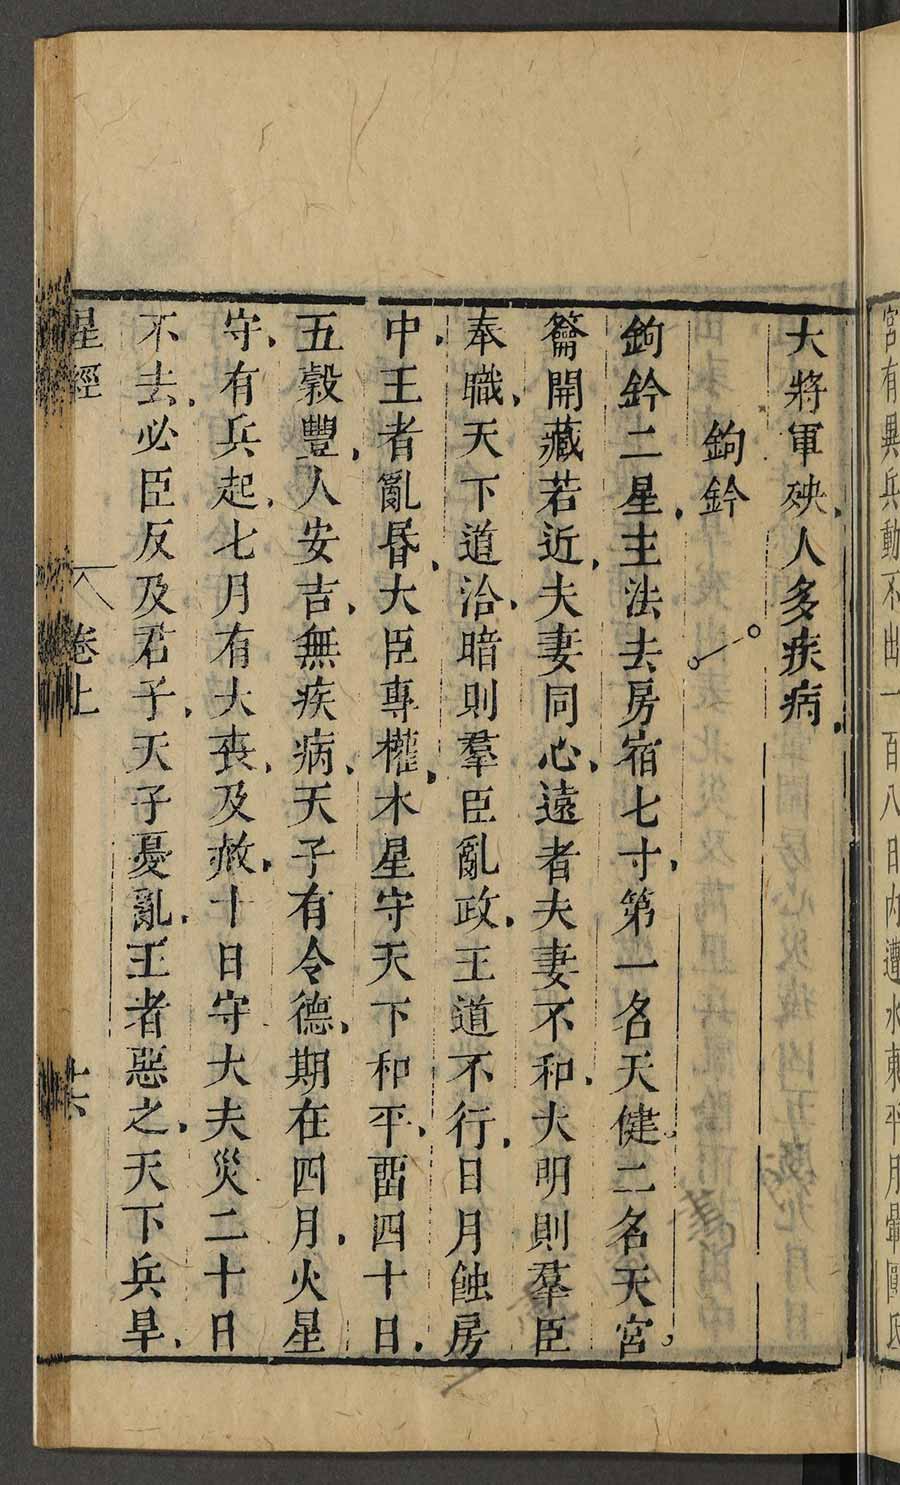 宮有異兵動不出一百八日內遭水東平月暈圍氐
大將軍殃人多疾病
鉤鈐
鉤鈐二星主法去房宿七寸第一名天健二名天宮
籥開藏若近夫妻同心遠者夫妻不和大明則羣臣
奉職天下道洽暗則羣臣亂政王道不行日月蝕房
中王者亂昏大臣專權木星守天下和平畱四十日
五穀豐人安吉無疾病天子有令德期在四月火星
守有兵起七月有大喪及赦十日守大夫災二十日
不去必臣反及君子天子憂亂王者惡之天下兵旱
星經 卷上